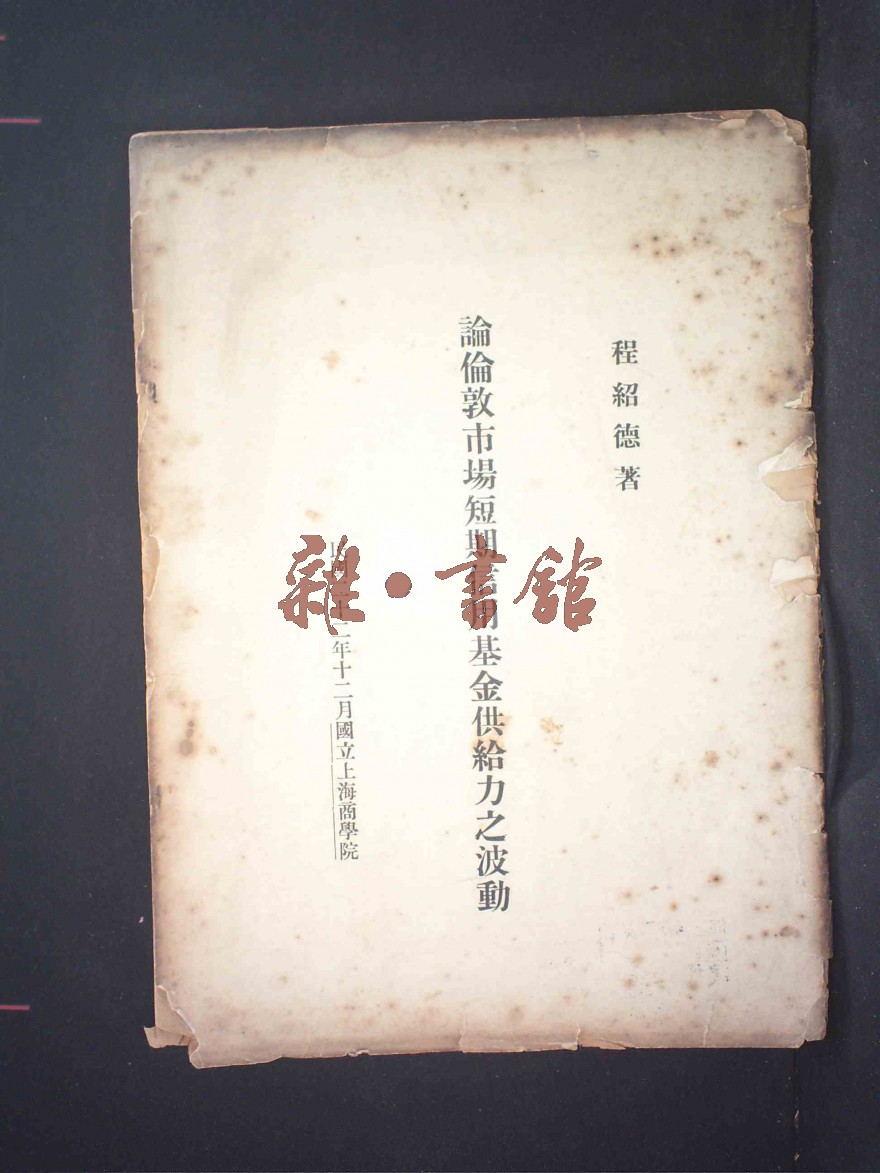 程紹德著
論倫敦市場短期信用基金供給力之波動
二年十二月國立上海商學院
雜·書館